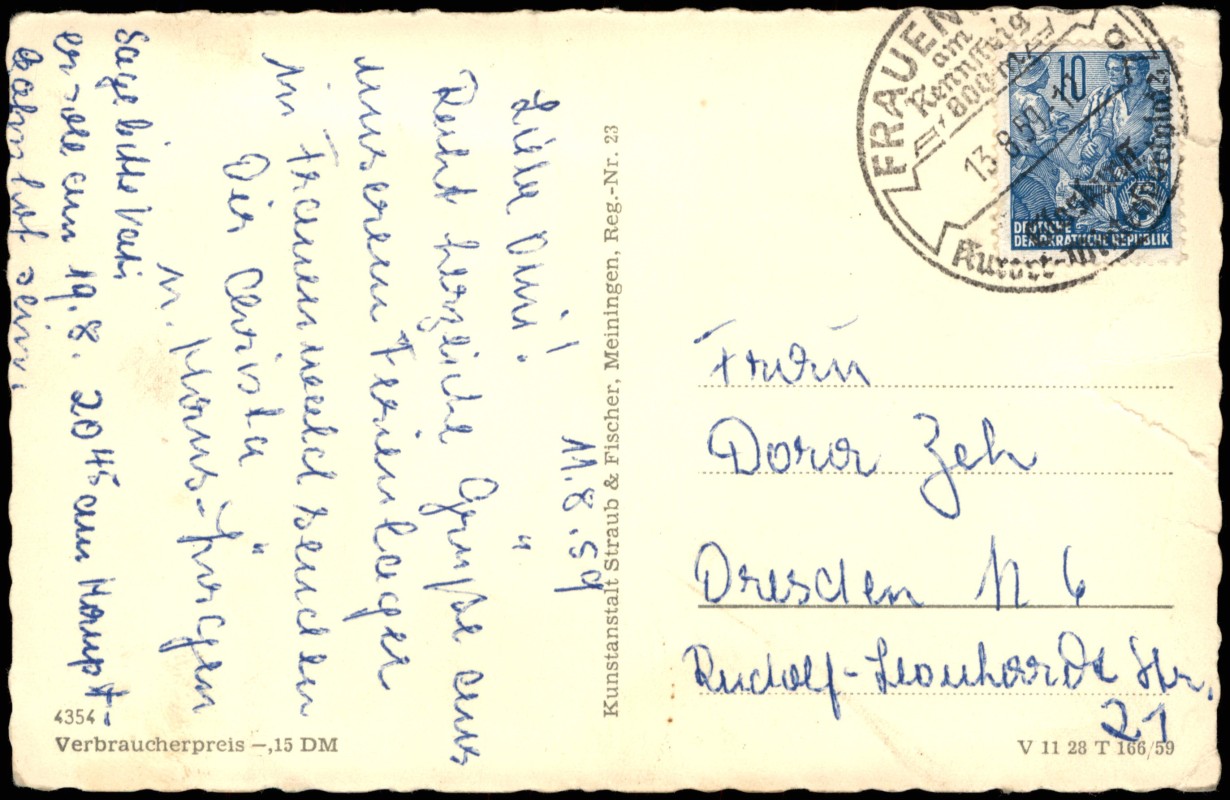 11.8.59
Liebe Omi!
Recht herzliche Grüße aus
unserem Ferienlager
in Frauenwald senden
Dir Christa
u. Hans-Jürgen
Sage bitte Vati
er solle am 19.8. 20 45 am Haupt-
bahnhof sein.
Kunstanstalt Straub & Fischer, Meiningen, Reg.-Nr. 23
4354
Verbraucherpreis –,15 DM
FRAUEN
am
Rennsteig
800 m
13.8.59.-12
a
Kurort
10
DEUTSCHE
DEMOKRATISCHE REPUBLIK
Frau
Dora Zeh
Dresden N 6
Rudolf-Leonhardt Str.
21
V 11 28 T 166/59